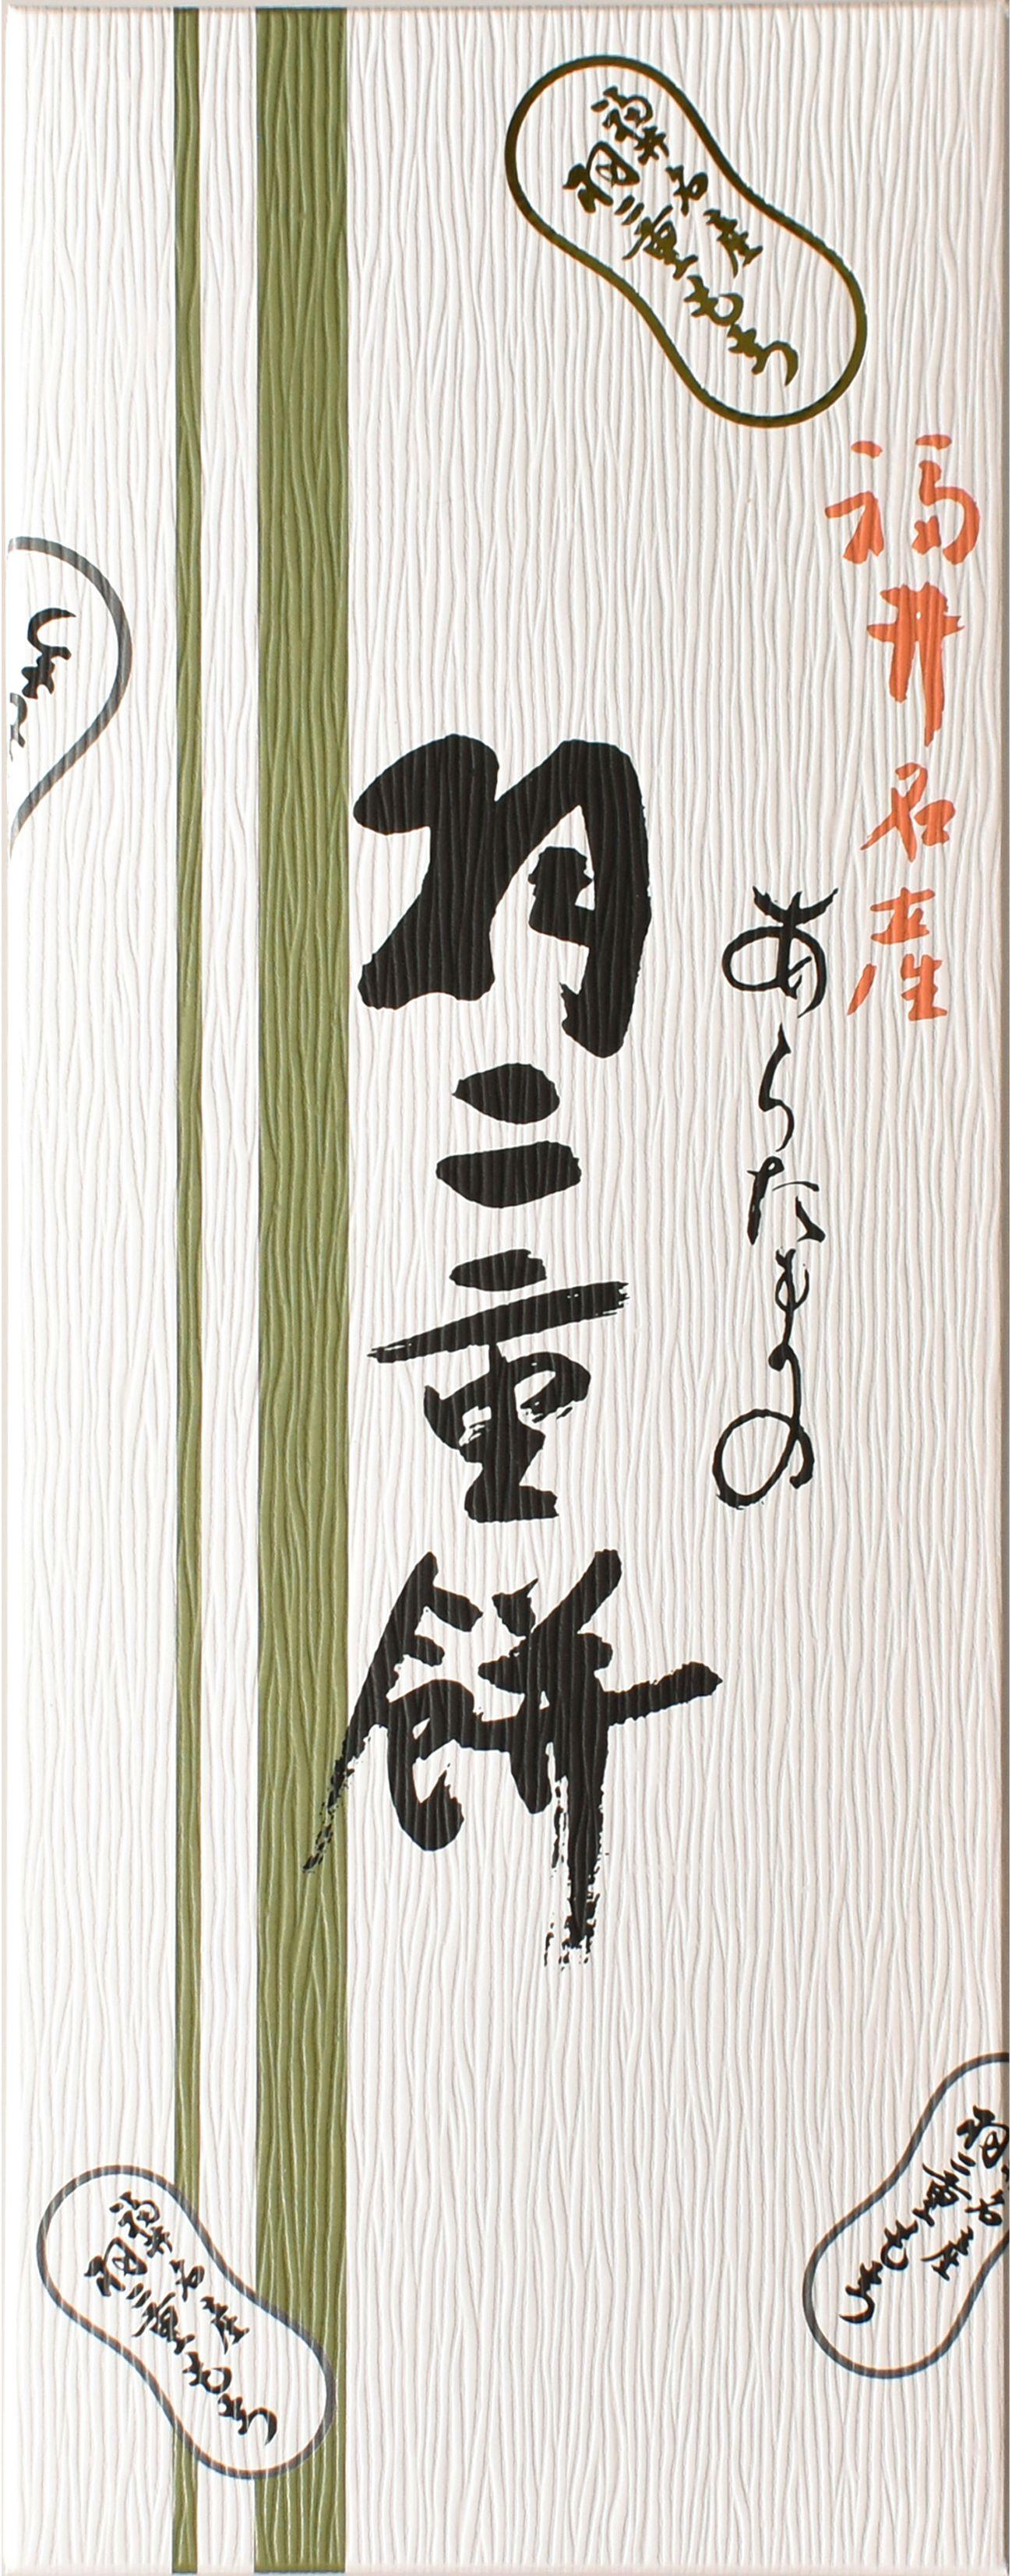 福井名産
あらたまの
羽二重餅
福井名産
羽二重もち
福井名産
羽二重もち
名産
羽二重もち
もち